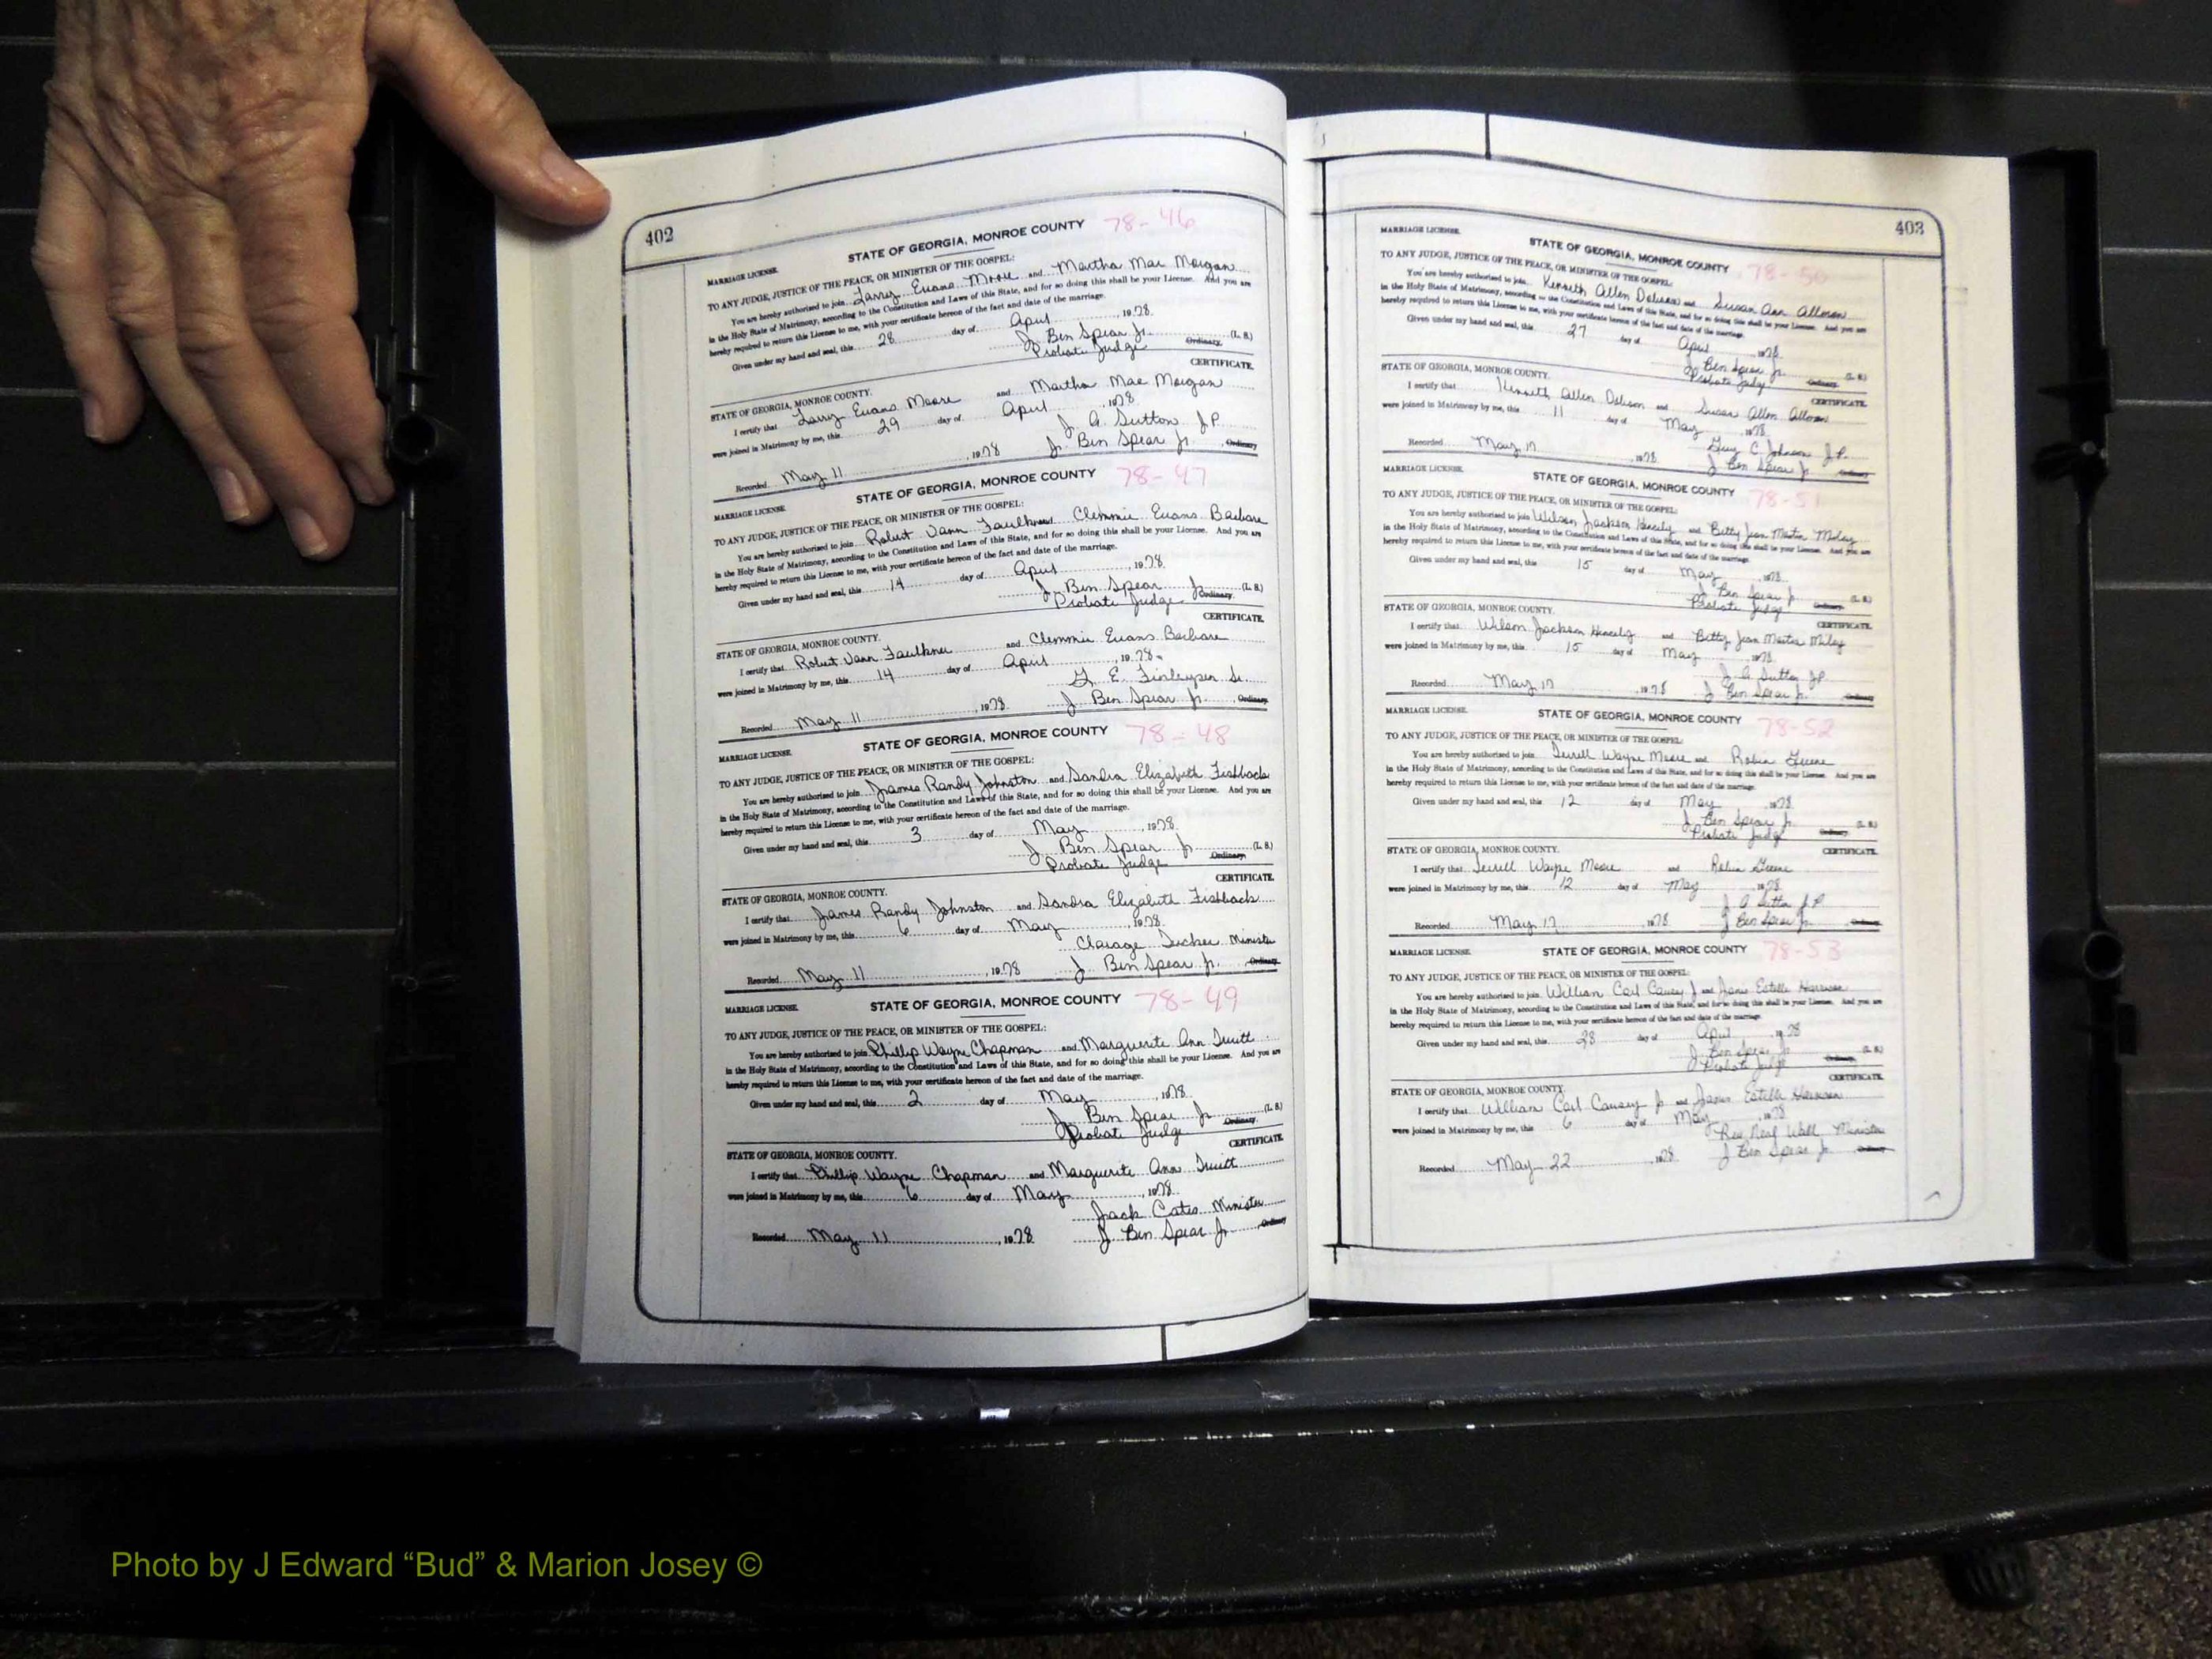 402
78-46
STATE OF GEORGIA, MONROE COUNTY
MARRIAGE LICENSE.
TO ANY JUDGE, JUSTICE OF THE PEACE, OR MINISTER OF THE GOSPEL:
You are hereby authorized to join Larry Evans Moore and Martha Mae Morgan
in the Holy State of Matrimony, according to the Constitution and Laws of this State, and for so doing this shall be your License. And you are
hereby required to return this License to me, with your certificate hereon of the fact and date of the marriage.
Given under my hand and seal, this 28 day of April, 1978.
J. Ben Spear Jr. (L. S.)
Probate Judge Ordinary.
CERTIFICATE.
STATE OF GEORGIA, MONROE COUNTY.
I certify that Larry Evans Moore and Martha Mae Morgan
were joined in Matrimony by me, this 29 day of April, 1978
J. A. Sutton J.P.
Recorded May 11, 1978 J. Ben Spear Jr., Ordinary
78-47
STATE OF GEORGIA, MONROE COUNTY
MARRIAGE LICENSE.
TO ANY JUDGE, JUSTICE OF THE PEACE, OR MINISTER OF THE GOSPEL:
You are hereby authorized to join Robert Vann Faulkner and Clemmie Evans Barbare
in the Holy State of Matrimony, according to the Constitution and Laws of this State, and for so doing this shall be your License. And you are
hereby required to return this License to me, with your certificate hereon of the fact and date of the marriage.
Given under my hand and seal, this 14 day of April, 1978.
J. Ben Spear Jr. (L. S.)
Probate Judge Ordinary.
CERTIFICATE.
STATE OF GEORGIA, MONROE COUNTY.
I certify that Robert Vann Faulkner and Clemmie Evans Barbare
were joined in Matrimony by me, this 14 day of April, 1978.
E. Finleyson Sr.
Recorded May 11, 1978. J. Ben Spear Jr., Ordinary
78-48
STATE OF GEORGIA, MONROE COUNTY
MARRIAGE LICENSE.
TO ANY JUDGE, JUSTICE OF THE PEACE, OR MINISTER OF THE GOSPEL:
You are hereby authorized to join James Randy Johnston and Sandra Elizabeth Fishback
in the Holy State of Matrimony, according to the Constitution and Laws of this State, and for so doing this shall be your License. And you are
hereby required to return this License to me, with your certificate hereon of the fact and date of the marriage.
Given under my hand and seal, this 3 day of May, 1978.
J. Ben Spear Jr. (L. S.)
Probate Judge Ordinary.
CERTIFICATE.
STATE OF GEORGIA, MONROE COUNTY.
I certify that James Randy Johnston and Sandra Elizabeth Fishback
were joined in Matrimony by me, this 6 day of May, 1978.
Tucker Minister
Recorded May 11, 1978 J. Ben Spear Jr. Ordinary
78-49
STATE OF GEORGIA, MONROE COUNTY
MARRIAGE LICENSE.
TO ANY JUDGE, JUSTICE OF THE PEACE, OR MINISTER OF THE GOSPEL:
You are hereby authorized to join Phillip Wayne Chapman and Marguerite Ann Truitt
in the Holy State of Matrimony, according to the Constitution and Laws of this State, and for so doing this shall be your License. And you are
hereby required to return this License to me, with your certificate hereon of the fact and date of the marriage.
Given under my hand and seal, this 2 day of May, 1978.
J. Ben Spear Jr (L. S.)
Probate Judge Ordinary.
CERTIFICATE.
STATE OF GEORGIA, MONROE COUNTY.
I certify that Phillip Wayne Chapman and Marguerite Ann Truitt
were joined in Matrimony by me, this 6 day of May, 1978.
Jack Cates Minister
Recorded May 11, 1978 J. Ben Spear Jr Ordinary
403
MARRIAGE LICENSE.
STATE OF GEORGIA, MONROE COUNTY 78-50
TO ANY JUDGE, JUSTICE OF THE PEACE, OR MINISTER OF THE GOSPEL:
You are hereby authorized to join Kenneth Allen and Susan Ann
in the Holy State of Matrimony, according to the Constitution and Laws of this State, and for so doing this shall be your License. And you are
hereby required to return this License to me, with your certificate hereon of the fact and date of the marriage.
Given under my hand and seal, this 27 day of April, 1978.
J Ben Spear Jr. (L. S.)
Probate Judge Ordinary.
CERTIFICATE.
STATE OF GEORGIA, MONROE COUNTY.
I certify that Kenneth Allen and Susan Allen
were joined in Matrimony by me, this 11 day of May, 1978.
Guy C. Johnson J.P.
Recorded May 17, 1978 J Ben Spear Jr. Ordinary
MARRIAGE LICENSE.
STATE OF GEORGIA, MONROE COUNTY 78-51
TO ANY JUDGE, JUSTICE OF THE PEACE, OR MINISTER OF THE GOSPEL:
You are hereby authorized to join Wilson Jackson and Betty Jean Martin Miley
in the Holy State of Matrimony, according to the Constitution and Laws of this State, and for so doing this shall be your License. And you are
hereby required to return this License to me, with your certificate hereon of the fact and date of the marriage.
Given under my hand and seal, this 15 day of May, 1978.
J Ben Spear Jr. (L. S.)
Probate Judge Ordinary.
CERTIFICATE.
STATE OF GEORGIA, MONROE COUNTY.
I certify that Wilson Jackson and Betty Jean Martin Miley
were joined in Matrimony by me, this 15 day of May, 1978.
J A Sutton JP
Recorded May 17, 1978 J Ben Spear Jr. Ordinary
MARRIAGE LICENSE.
STATE OF GEORGIA, MONROE COUNTY 78-52
TO ANY JUDGE, JUSTICE OF THE PEACE, OR MINISTER OF THE GOSPEL:
You are hereby authorized to join Wayne Moore and Robin Greene
in the Holy State of Matrimony, according to the Constitution and Laws of this State, and for so doing this shall be your License. And you are
hereby required to return this License to me, with your certificate hereon of the fact and date of the marriage.
Given under my hand and seal, this 12 day of May, 1978
J Ben Spear Jr. (L. S.)
Probate Judge Ordinary.
CERTIFICATE.
STATE OF GEORGIA, MONROE COUNTY.
I certify that Wayne Moore and Robin Greene
were joined in Matrimony by me, this 12 day of May, 1978.
J A Sutton J.P.
Recorded May 17, 1978 J Ben Spear Jr. Ordinary
MARRIAGE LICENSE.
STATE OF GEORGIA, MONROE COUNTY 78-53
TO ANY JUDGE, JUSTICE OF THE PEACE, OR MINISTER OF THE GOSPEL:
You are hereby authorized to join William Carl Causey J and Janis Estelle Harrison
in the Holy State of Matrimony, according to the Constitution and Laws of this State, and for so doing this shall be your License. And you are
hereby required to return this License to me, with your certificate hereon of the fact and date of the marriage.
Given under my hand and seal, this 28 day of April, 1978
J. Ben Spear Jr (L. S.)
Probate Judge Ordinary.
CERTIFICATE.
STATE OF GEORGIA, MONROE COUNTY.
I certify that William Carl Causey Jr and Janis Estelle Harrison
were joined in Matrimony by me, this 6 day of May, 1978
Rev Neal Wall Minister
Recorded May 22, 1978. J Ben Spear Jr. Ordinary
Photo by J Edward “Bud” & Marion Josey ©